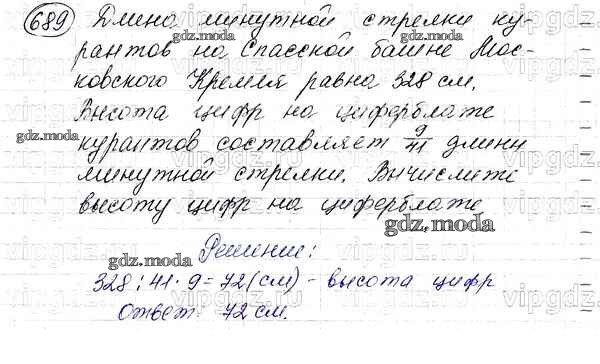 689 Длина минутной стрелки ку-
рантов на Спасской башне Мос-
ковского Кремля равна 328 см.
Высота цифр на циферблате
курантов составляет 9/41 длины
минутной стрелки. Вычислите
высоту цифр на циферблате
Решение:
328:41·9=72(см) - высота цифр
Ответ: 72 см.
gdz.moda
gdz.moda
gdz.moda
gdz.moda
gdz.moda
gdz.moda
vipgdz